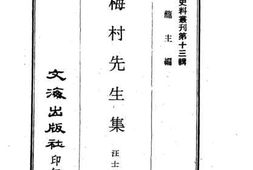 史料叢刊第十三輯
龍主編
梅村先生集
汪士
文海出版社印行